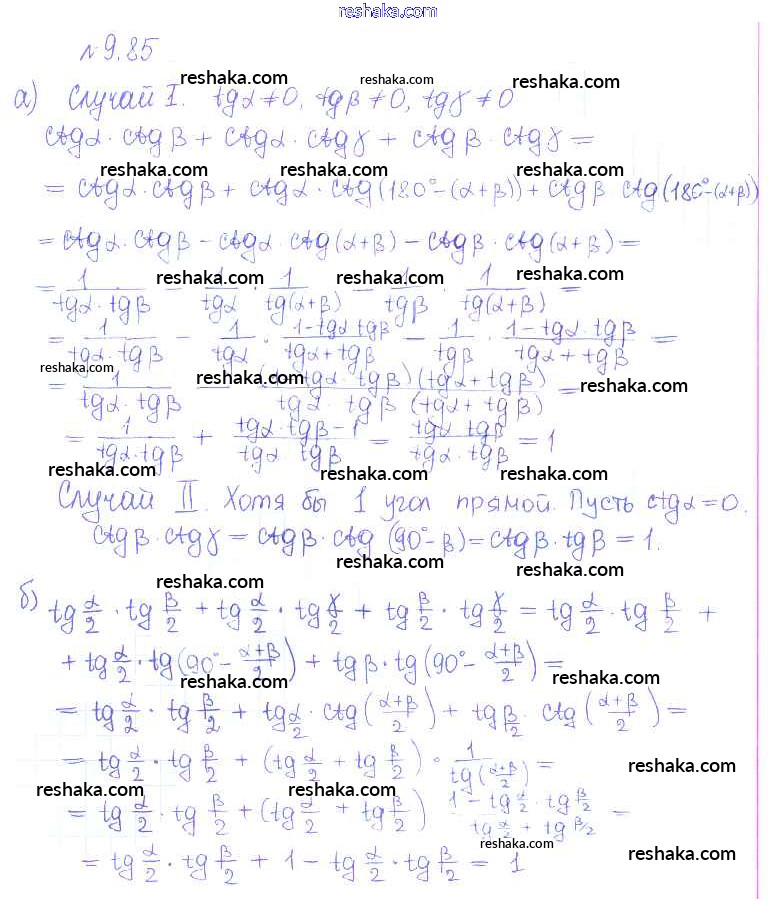 reshaka.com
№9.85
reshaka.com reshaka.com reshaka.com
а) Случай I. tgα≠0, tgβ≠0, tgγ≠0
ctgα·ctgβ + ctgα·ctgγ + ctgβ·ctgγ =
reshaka.com reshaka.com reshaka.com
= ctgα·ctgβ + ctgα·ctg(180°-(α+β)) + ctgβ ctg(180°-(α+β))
reshaka.com reshaka.com
= ctgα·ctgβ - ctgα·ctg(α+β) - ctgβ·ctg(α+β) =
reshaka.com reshaka.com reshaka.com
= 1/(tgα·tgβ) - 1/tgα · 1/tg(α+β) - 1/tgβ · 1/tg(α+β) =
= 1/(tgα·tgβ) - 1/tgα · (1-tgα tgβ)/(tgα+tgβ) - 1/tgβ · (1-tgα·tgβ)/(tgα+tgβ) =
reshaka.com reshaka.com reshaka.com
= 1/(tgα·tgβ) tgα·tgβ)(tgα+tgβ)/(tgα·tgβ (tgα+tgβ)) =
= 1/(tgα·tgβ) + (tgα·tgβ-1)/(tgα tgβ) = (tgα tgβ)/(tgα·tgβ) = 1
reshaka.com reshaka.com reshaka.com
Случай II. Хотя бы 1 угол прямой. Пусть ctgα=0.
ctgβ·ctgγ = ctgβ·ctg(90°-β) = ctgβ·tgβ = 1.
reshaka.com
reshaka.com
б) tg α/2 · tg β/2 + tg α/2 · tg γ/2 + tg β/2 · tg γ/2 = tg α/2 · tg β/2 +
reshaka.com
+ tg α/2 · tg(90°- (α+β)/2) + tgβ·tg(90°- (α+β)/2) =
reshaka.com reshaka.com
= tg α/2 · tg β/2 + tg α/2 · ctg((α+β)/2) + tg β/2 · ctg((α+β)/2) =
reshaka.com
= tg α/2 · tg β/2 + (tg α/2 + tg β/2) · 1/tg((α+β)/2) =
reshaka.com
reshaka.com reshaka.com
= tg α/2 · tg β/2 + (tg α/2 + tg β/2) (1 - tg α/2 · tg β/2)/(tg α/2 + tg β/2) =
reshaka.com
= tg α/2 · tg β/2 + 1 - tg α/2 · tg β/2 = 1
reshaka.com